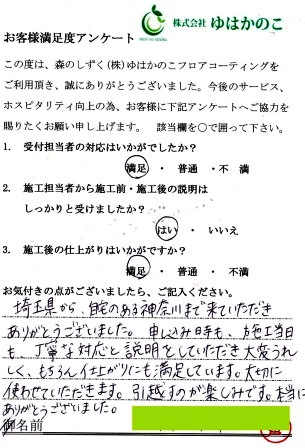 株式会社 ゆはかのこ
Mori no sizuku
お客様満足度アンケート
この度は、森のしずく(株)ゆはかのこフロアコーティングを
ご利用頂き、誠にありがとうございました。今後のサービス、
ホスピタリティ向上の為、お客様に下記アンケートへご協力を
賜りたくお願い申し上げます。 該当欄を〇で囲って下さい。
1. 受付担当者の対応はいかがでしたか?
満足 ・ 普通 ・ 不 満
2. 施工担当者から施工前・施工後の説明は
しっかりと受けましたか?
はい ・ いいえ
3. 施工後の仕上がりはいかがですか?
満足 ・ 普通 ・ 不 満
お気付きの点がございましたら、ご記入ください。
埼玉県から、自宅のある神奈川まで来ていただき
ありがとうございました。申し込み時も、施工当日
も、丁寧な対応と説明をしていただき大変うれ
しく、もちろん仕上がりにも満足しています。大切に
使わせていただきます。引越すのが楽しみです。本当に
ありがとうございました。
御名前